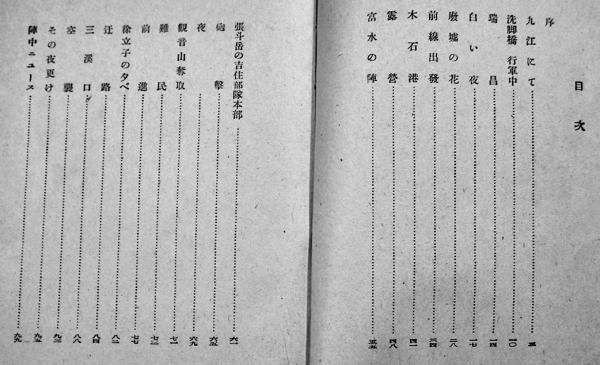 目次
序
九江にて……三
洗脚橋 行軍中……一〇
瑞昌……一四
白い夜……一七
廢墟の花……二八
前線出發……三四
木石港……四一
露營……四八
富水の陣……五五
張斗岳の吉住部隊本部……六一
砲擊……六五
夜……六九
觀音山奪取……七一
難民……七三
前進……七七
徐立子の夕べ……八一
迂路……八四
三溪口……八八
空襲……九三
その夜更け……九五
陣中ニュース……九九